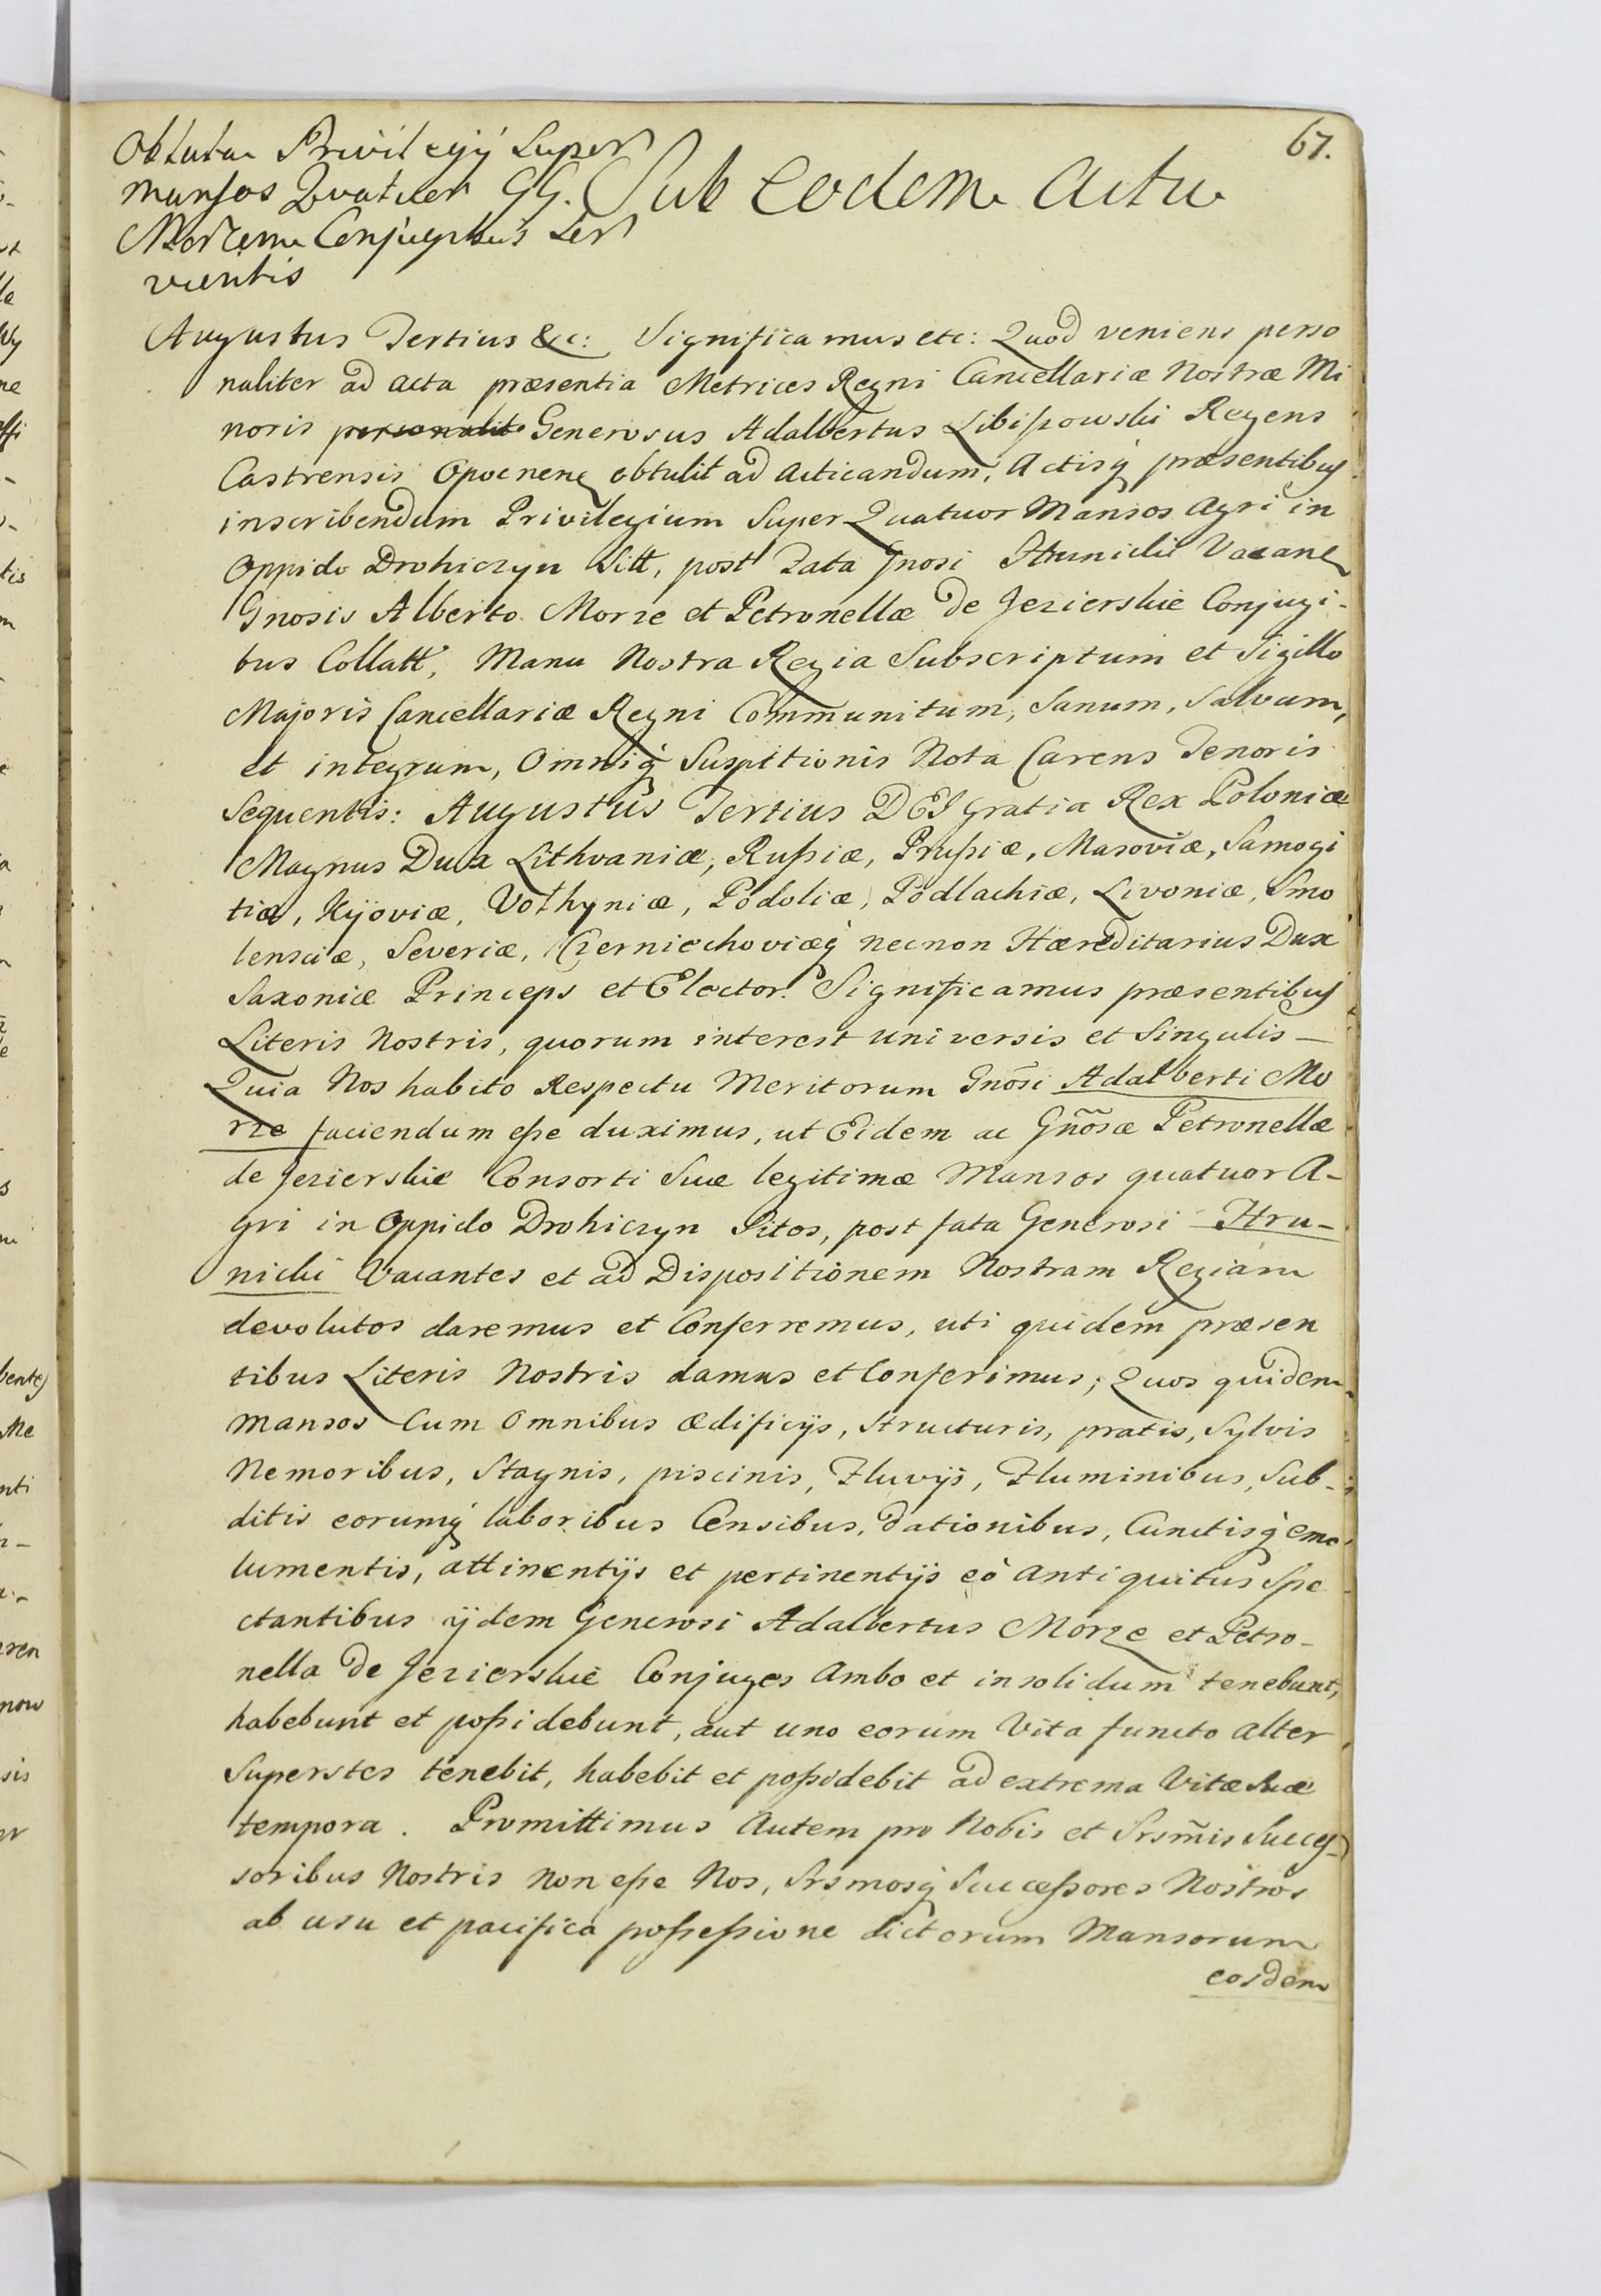 67.
Oblata Privilegÿ Super
mansos Quatuor GG.
Morzem Conjugibus Ser
vientis
Sub Eodem Actu
Augustus Tertius &c: Significamus etc: Quod veniens perso
naliter ad acta præsentia Metrices Regni Cancellariæ Nostræ Mi
noris personalit Generosus Adalbertus Libiszowski Regens
Castrensis Opocnen obtulit ad acticandum, Actisq præsentibus
inscribendum Privilegium Super Quatuor Mansos Agri in
Oppido Drohiczyn Sitt, post Fata Gnosi Hrunicki Vacan
Gnosis Alberto Morze et Petronellæ de Jezierskie Conjugi-
bus Collatt, Manu Nostra Regia Subscriptum et Sigillo
Majoris Cancellariæ Regni Communitum, Sanum, Salvum,
et integrum, Omniq Suspitionis Nota Carens Tenoris
Sequentis: Augustus Tertius DEI Gratia Rex Poloniæ
Magnus Dux Lithvaniæ, Rußiæ, Prußiæ, Masoviæ, Samogi
tiæ, Kÿoviæ, Volhyniæ, Podoliæ, Podlachiæ, Livoniæ, Smo
lensciæ, Severiæ, Czerniechoviæq necnon Hæreditarius Dux
Saxoniæ Princeps et Elector. Significamus præsentibus
Literis Nostris, quorum interest universis et Singulis —
Quia Nos habito Respectu Meritorum Gnõsi Adalberti Mo
rze faciendum eße duximus, ut Eidem ac Gñõsæ Petronellæ
de Jezierskie Consorti Suæ legitimæ Mansos quatuor A-
gri in Oppido Drohiczyn Sitos, post fata Generosi Hru-
nicki Vacantes et ad Dispositionem Nostram Regiam
devolutos daremus et Conferremus, uti quidem præsen
tibus Literis Nostris damus et Conferimus; Quos quidem
Mansos Cum Omnibus ædificijs, Structuris, pratis, Sylvis
Nemoribus, Stagnis, piscinis, Fluvijs, Fluminibus, Sub-
ditis eorumq laboribus Censibus, dationibus, Cunctisq emo
lumentis, attinentijs et pertinentijs eò Antiquitus Spe
ctantibus ijdem Generosi Adalbertus Morze et Petro-
nella de Jezierskie Conjuges Ambo et insolidum tenebunt,
habebunt et poßidebunt, aut uno eorum Vita functo Alter
Superstes tenebit, habebit et poßidebit ad extrema Vitæ Suæ
tempora. Promittimus Autem pro Nobis et Srsm̃is Succes-
soribus Nostris Non eße Nos, Srsmosq Succeßores Nostros
ab usu et pacifica poßeßione dictorum Mansorum
eosdem